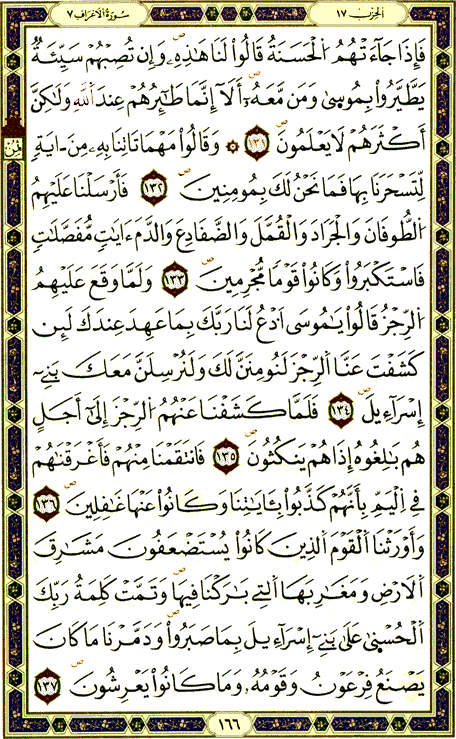 الحزب ١٧
سُورَةُ الْأَعْرَافِ ٧
فَإِذَا جَآءَتْهُمُ الْحَسَنَةُ قَالُواْ لَنَا هَٰذِهِۦ وَإِن تُصِبْهُمْ سَيِّئَةٌ
يَطَّيَّرُواْ بِمُوسَىٰ وَمَن مَّعَهُۥٓ أَلَآ إِنَّمَا طَٰٓئِرُهُمْ عِندَ اَللَّهِ وَلَٰكِنَّ
أَكْثَرَهُمْ لَا يَعْلَمُونَ ١٣١ ۞ وَقَالُواْ مَهْمَا تَاتِنَا بِهِۦ مِنَ ـ ايَةٍ
ثمن
لِّتَسْحَرَنَا بِهَا فَمَا نَحْنُ لَكَ بِمُومِنِينَ ١٣٢ فَأَرْسَلْنَا عَلَيْهِمُ
الطُّوفَانَ وَالْجَرَادَ وَالْقُمَّلَ وَالضَّفَادِعَ وَالدَّمَ ءَايَٰتٍ مُّفَصَّلَٰتٍ
فَاسْتَكْبَرُواْ وَكَانُواْ قَوْماً مُّجْرِمِينَ ١٣٣ وَلَمَّا وَقَعَ عَلَيْهِمُ
الرِّجْزُ قَالُواْ يَٰمُوسَى اَدْعُ لَنَا رَبَّكَ بِمَا عَهِدَ عِندَكَ لَئِن
كَشَفْتَ عَنَّا اَلرِّجْزَ لَنُومِنَنَّ لَكَ وَلَنُرْسِلَنَّ مَعَكَ بَنِےٓ
إِسْرَآءِيلَ ١٣٤ فَلَمَّا كَشَفْنَا عَنْهُمُ اُلرِّجْزَ إِلَىٰٓ أَجَلٍ
هُم بَٰلِغُوهُ إِذَا هُمْ يَنكُثُونَ ١٣٥ فَانتَقَمْنَا مِنْهُمْ فَأَغْرَقْنَٰهُمْ
فِے اِلْيَمِّ بِأَنَّهُمْ كَذَّبُواْ بِـَٔايَٰتِنَا وَكَانُواْ عَنْهَا غَٰفِلِينَ ١٣٦
وَأَوْرَثْنَا اَلْقَوْمَ اَلذِينَ كَانُواْ يُسْتَضْعَفُونَ مَشَٰرِقَ
اَلَارْضِ وَمَغَٰرِبَهَا اَلتِے بَٰرَكْنَا فِيهَا وَتَمَّتْ كَلِمَتُ رَبِّكَ
اَلْحُسْنَىٰ عَلَىٰ بَنِےٓ إِسْرَآءِيلَ بِمَا صَبَرُواْ وَدَمَّرْنَا مَا كَانَ
يَصْنَعُ فِرْعَوْنُ وَقَوْمُهُۥ وَمَا كَانُواْ يَعْرِشُونَ ١٣٧
١٦٦